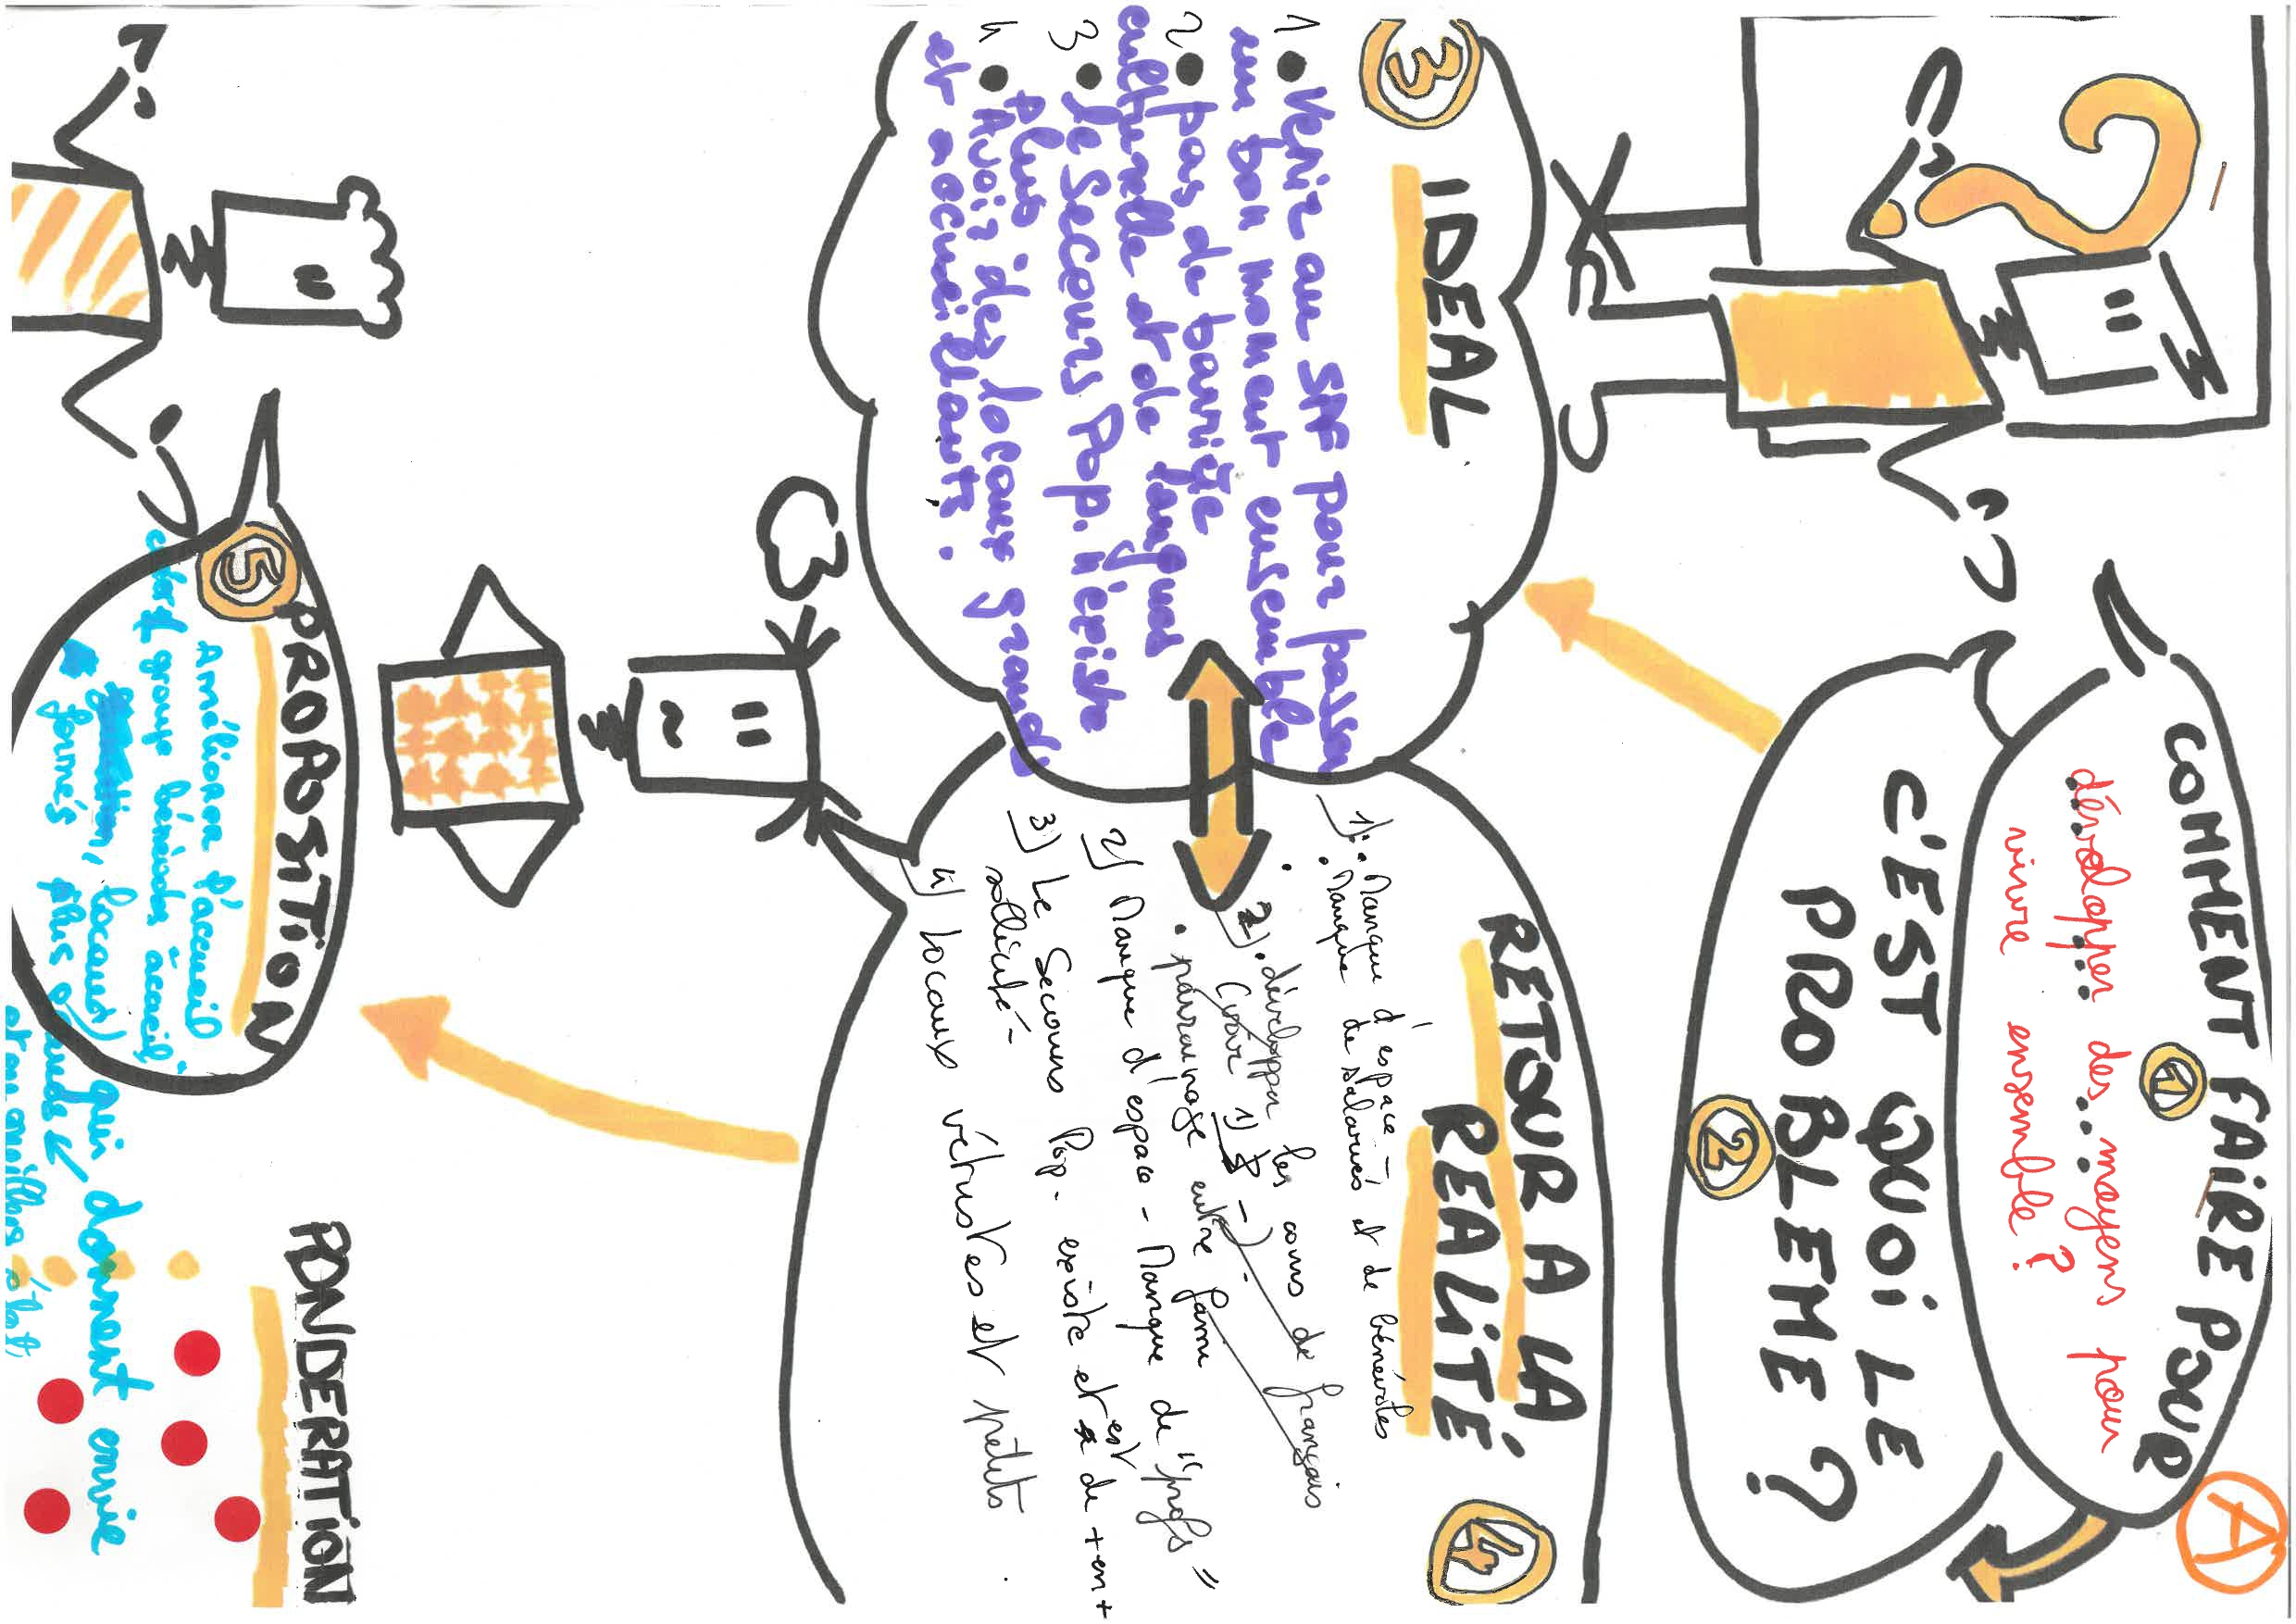 A
COMMENT FAIRE POUR
1
développer des... moyens pour
vivre ensemble ?
C'EST QUOI LE
PROBLEME ?
2
3
IDEAL
1 • Venir au SPF pour passer
un bon moment ensemble
2 • pas de barrière
culturelle et de langues
3 • le Secours Pop. n'existe
plus
4 • Avoir des locaux grands
et accueillants.
4
RETOUR A LA
REALITÉ
1) • Manque d'espace -
• Manque de salariés et de bénévoles
2) • développer les cours de français
(voir 1) -)
• parrainage entre fami
2) Manque d'espace - Manque de "profs"
3) Le Secours Pop. existe et est de + en +
sollicité -
4) Locaux vétustes et petits.
5
PROPOSITION
Améliorer l'accueil
groupe bénévoles accueil
formés, locaux) qui donnent envie
plus grands
PONDERATION